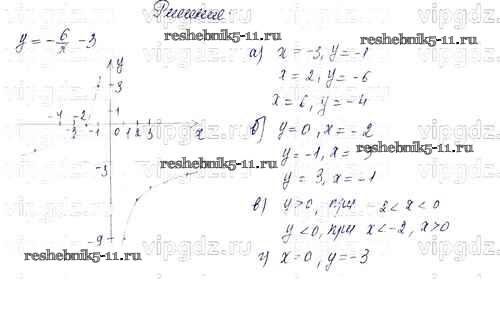 Решение.
y = -6/x - 3
reshebnik5-11.ru
vipgdz.ru
а) x = -3, y = -1
x = 2, y = -6
x = 6, y = -4
б) y = 0, x = -2
y = -1, x = -3
y = 3, x = -1
в) y > 0, при -2 < x < 0
y < 0, при x < -2, x > 0
г) x = 0, y = -3
y
3
1
-4 -2
-3 -1 0 1 2 3 x
-3
-9
reshebnik5-11.ru
reshebnik5-11.ru
reshebnik5-11.ru
reshebnik5-11.ru
vipgdz.ru
vipgdz.ru
vipgdz.ru